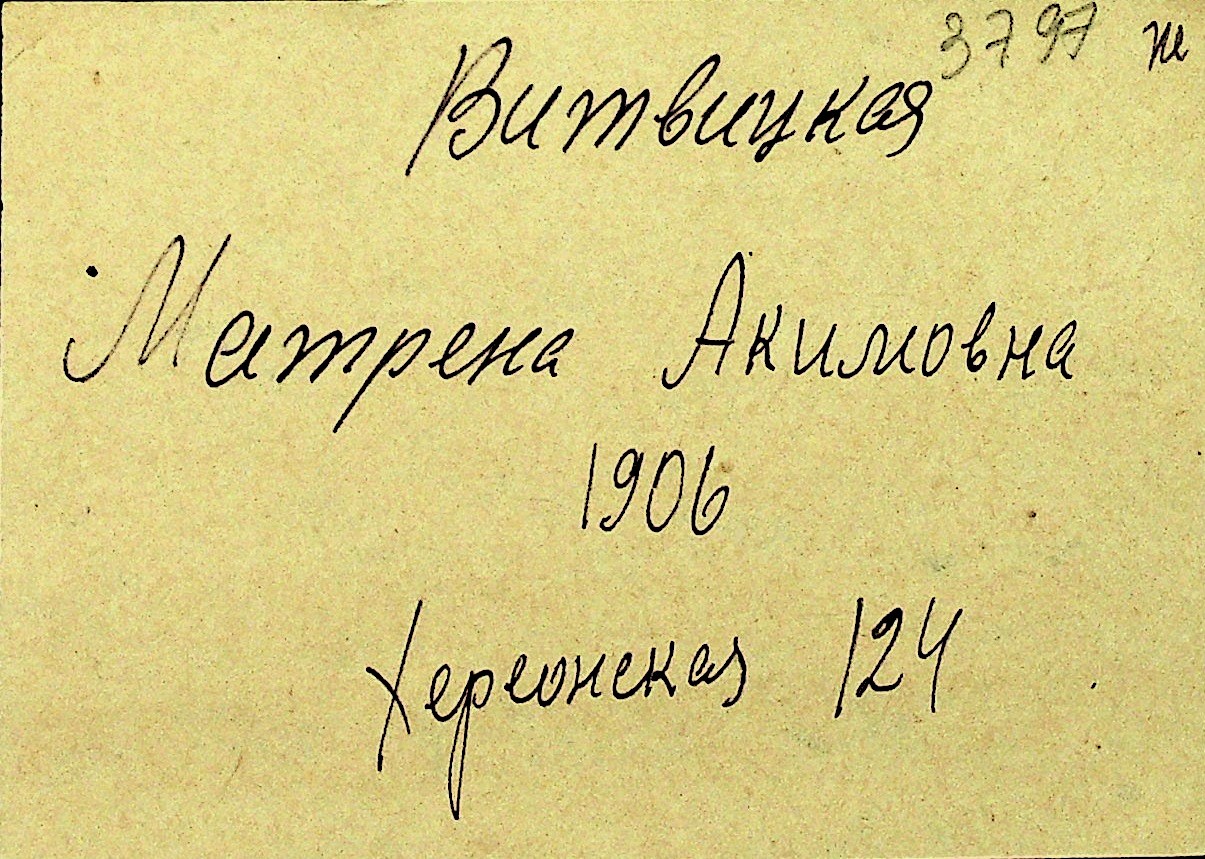 3797 ж
Витвицкая
Матрена Акимовна
1906
Херсонская 124